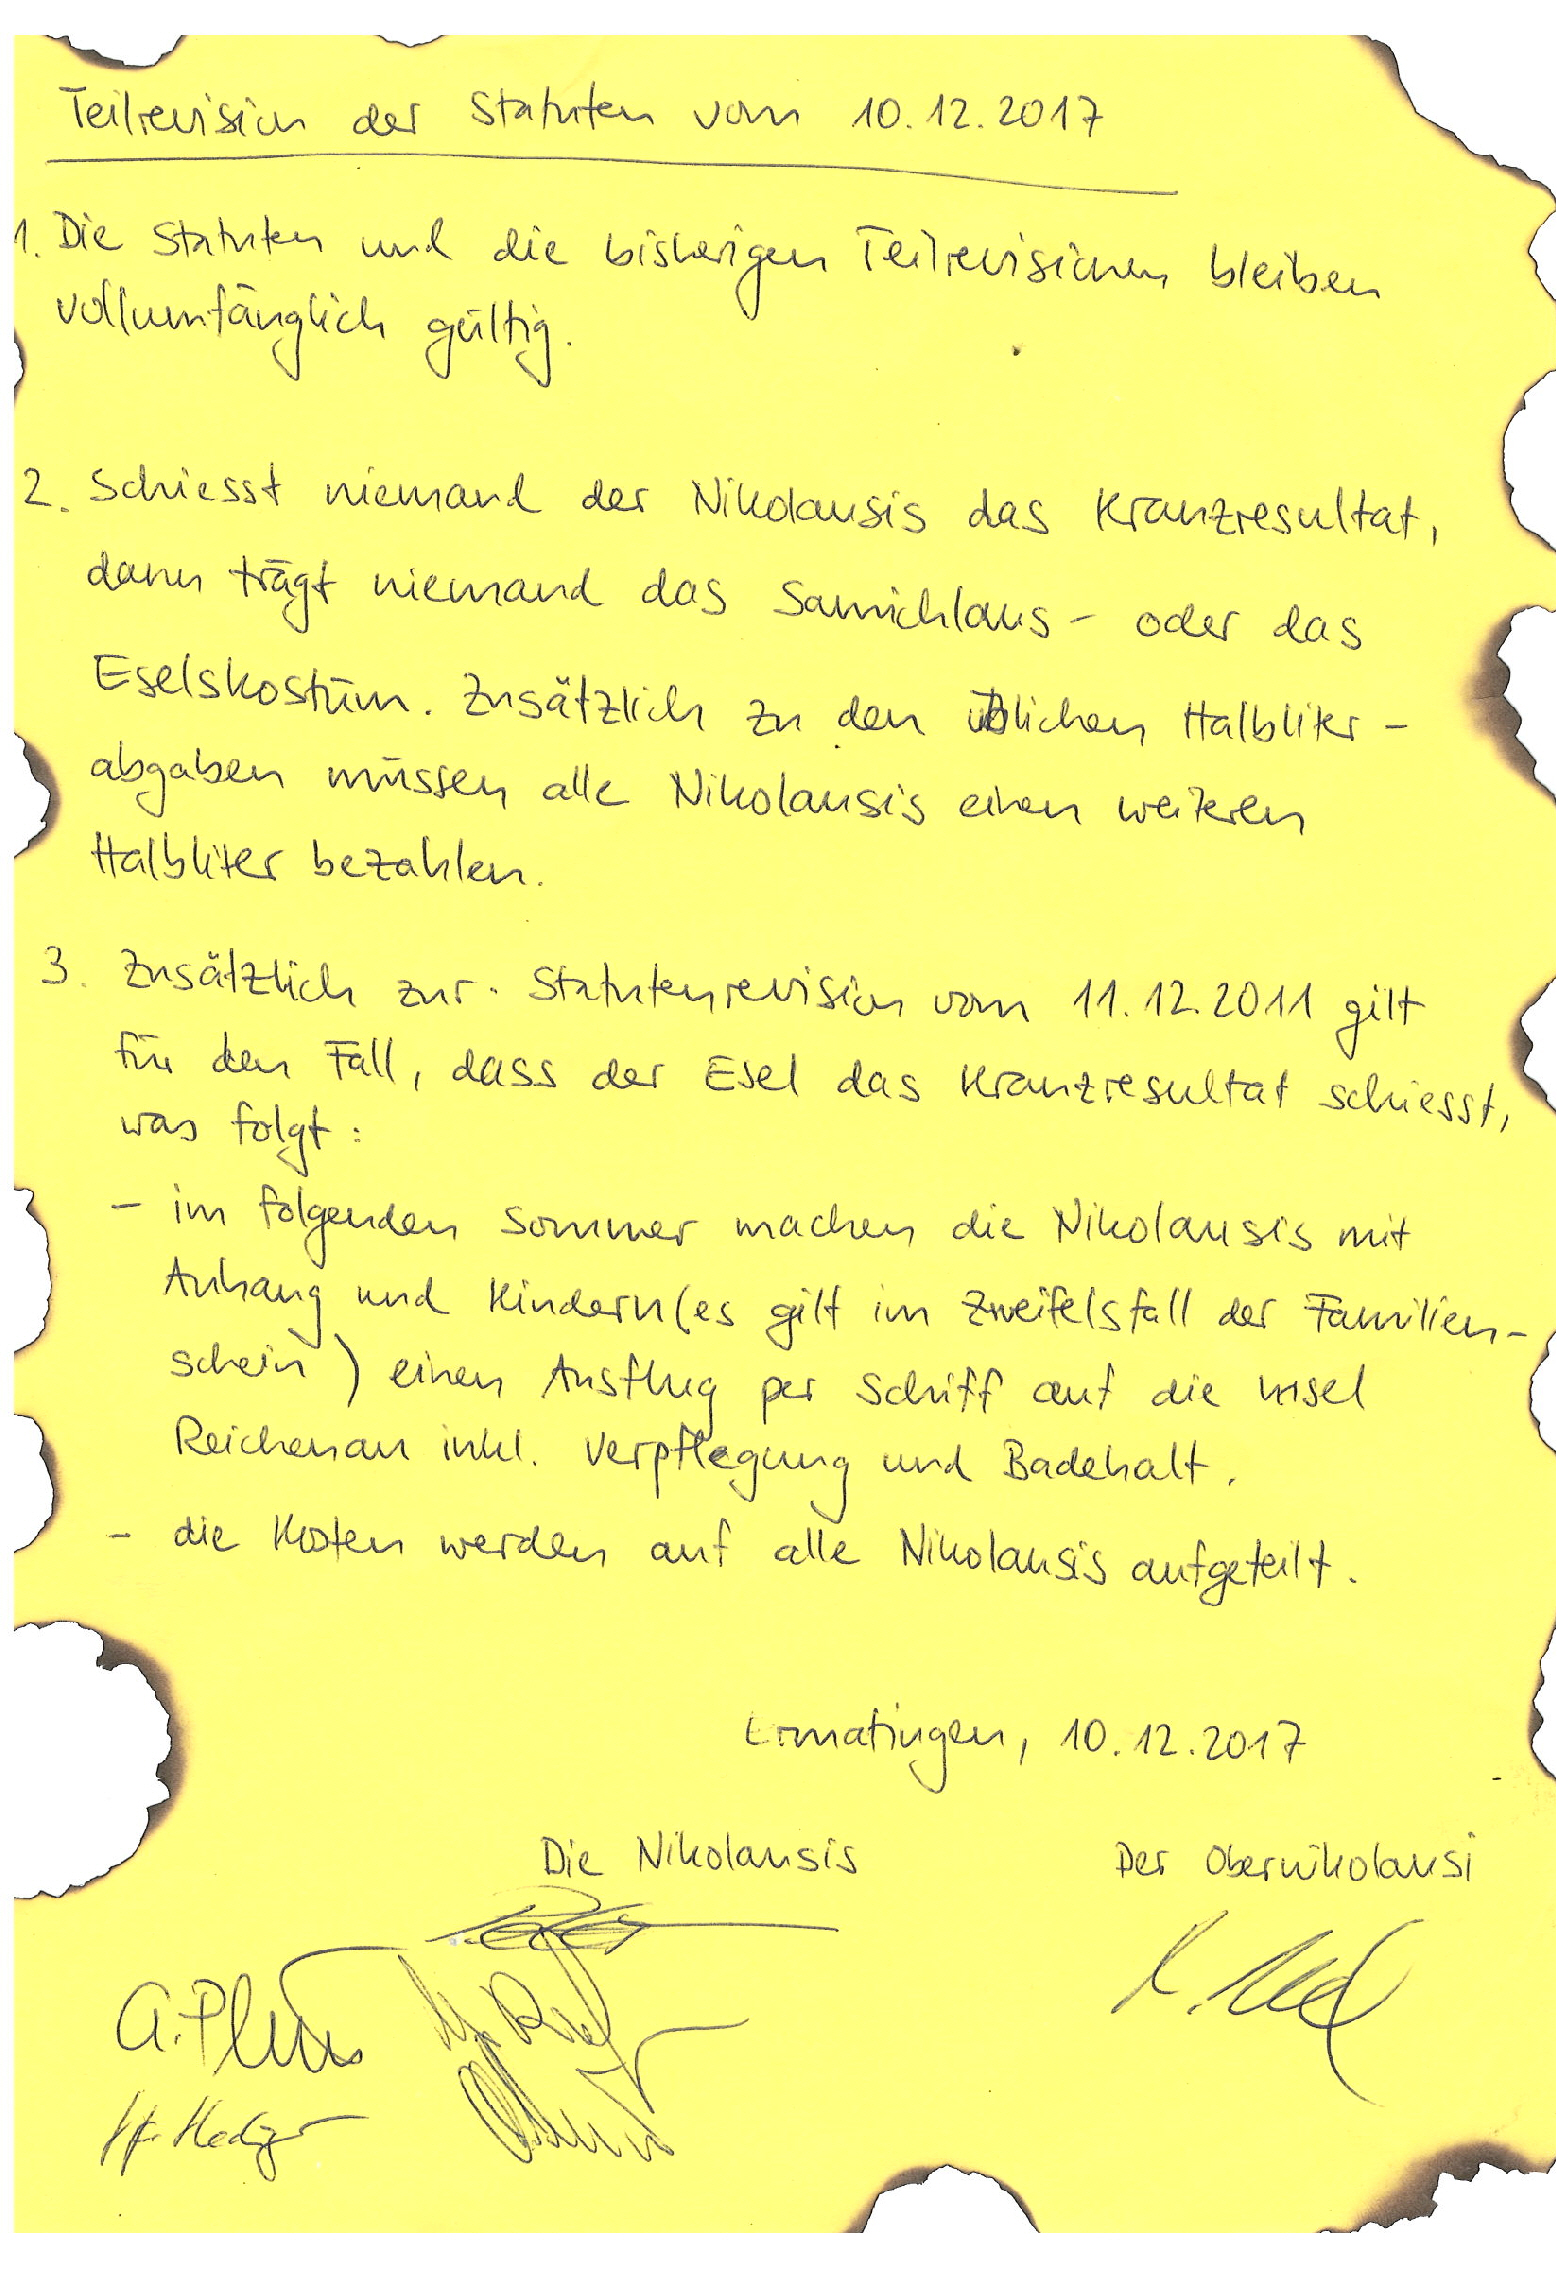 Teilrevision der Statuten vom 10.12.2017
1. Die Statuten und die bisherigen Teilrevisionen bleiben
vollumfänglich gültig.
2. Schiesst niemand der Nikolausis das Kranzresultat,
dann trägt niemand das Samichlaus- oder das
Eselskostüm. Zusätzlich zu den üblichen Halbliter-
abgaben müssen alle Nikolausis einen weiteren
Halbliter bezahlen.
3. Zusätzlich zur Statutenrevision vom 11.12.2011 gilt
für den Fall, dass der Esel das Kranzresultat schiesst,
was folgt:
- im folgenden Sommer machen die Nikolausis mit
Anhang und Kindern (es gilt im Zweifelsfall der Familien-
schein) einen Ausflug per Schiff auf die Insel
Reichenau inkl. Verpflegung und Badehalt.
- die Kosten werden auf alle Nikolausis aufgeteilt.
Ermatingen, 10.12.2017
Die Nikolausis
Der Obernikolausi